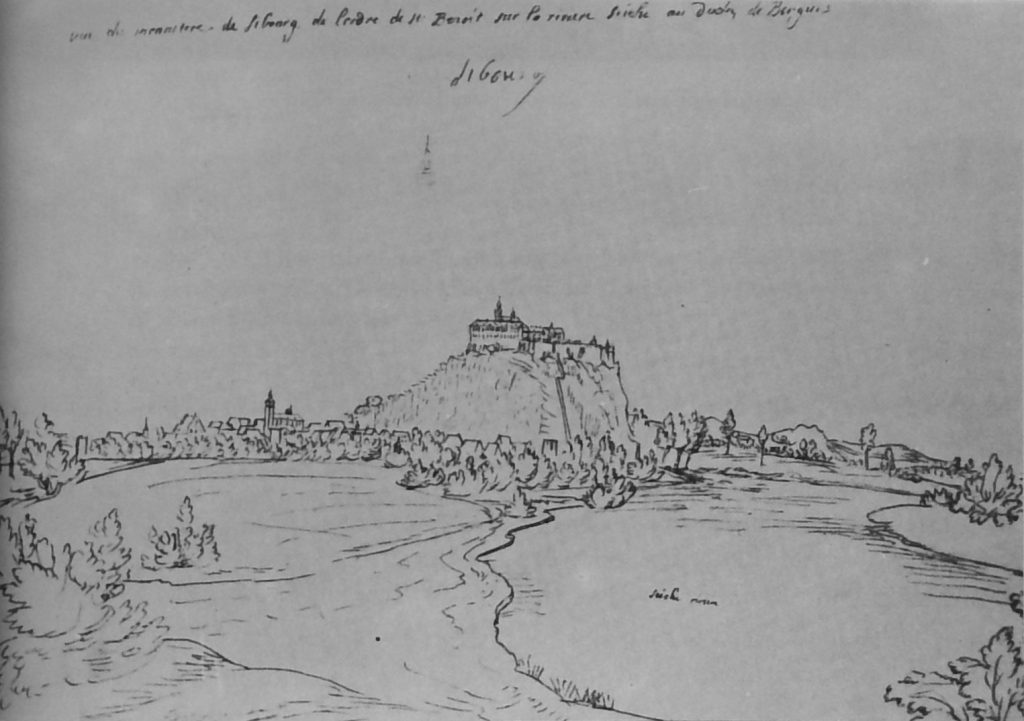 vue du monastere de siburg de l'ordre de st Benoit sur la riviere sieche au Duché de Bergues
siburg
sieche